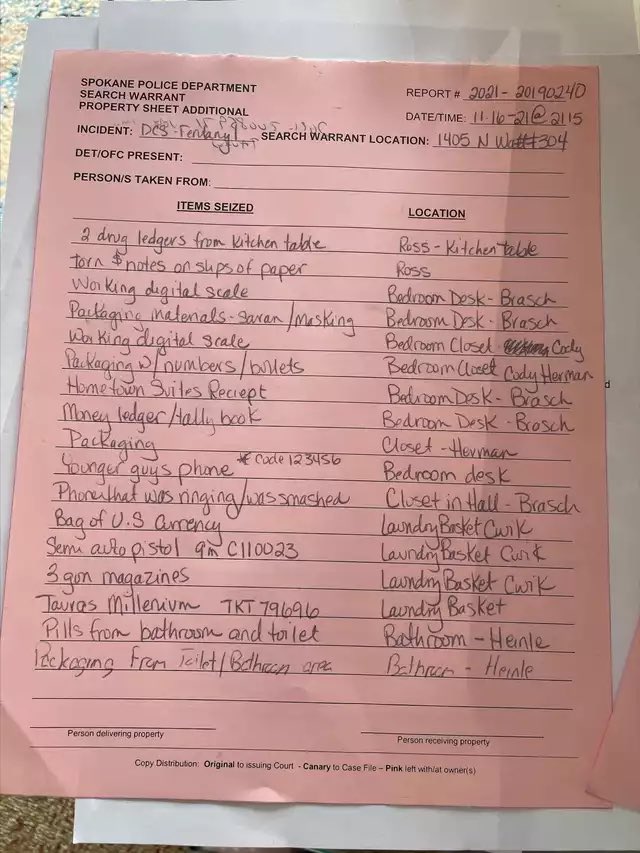 SPOKANE POLICE DEPARTMENT
SEARCH WARRANT
PROPERTY SHEET ADDITIONAL
REPORT # 2021-20190240
DATE/TIME: 11-16-21@2115
INCIDENT: DCS-Fentanyl SEARCH WARRANT LOCATION: 1405 N #304
DET/OFC PRESENT:
PERSON/S TAKEN FROM:
ITEMS SEIZED LOCATION
2 drug ledgers from kitchen table Ross-Kitchen table
torn $ notes on slips of paper Ross
Working digital scale Bedroom Desk-Brasch
Packaging materials-saran/masking Bedroom Desk-Brasch
Working digital scale Bedroom Closet Cody
Packaging w/numbers/bullets Bedroom Closet Cody Herman
Hometown Suites Reciept Bedroom Desk-Brasch
Money ledger/tally book Bedroom Desk-Brasch
Packaging Closet-Herman
Younger guys phone * Code 123456 Bedroom desk
Phone that was ringing/was smashed Closet in Hall-Brasch
Bag of U.S Currency Laundry Basket Cwik
Semi auto pistol 9m C110023 Laundry Basket Cwik
3 gun magazines Laundry Basket Cwik
Tauras Millenium TKT79696 Laundry Basket
Pills from bathroom and toilet Bathroom-Heinle
Packaging From Toilet/Bathroom area Bathroom-Heinle
Person delivering property Person receiving property
Copy Distribution: Original to issuing Court - Canary to Case File – Pink left with/at owner(s)